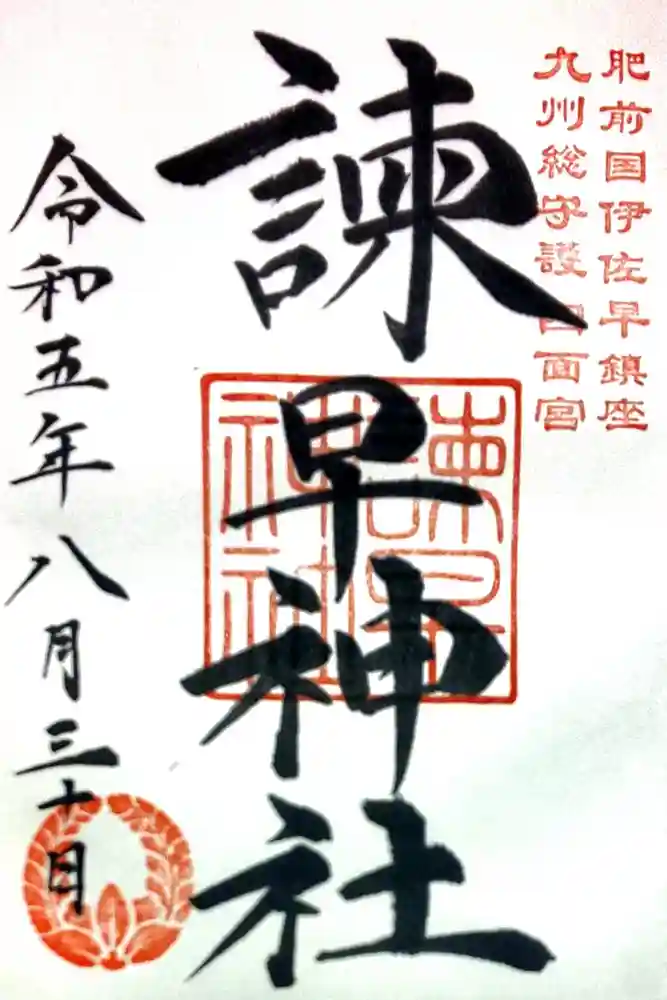 肥前国伊佐早鎮座
九州総守護四面宮
諫早神社
諫早神社
令和五年八月三十日